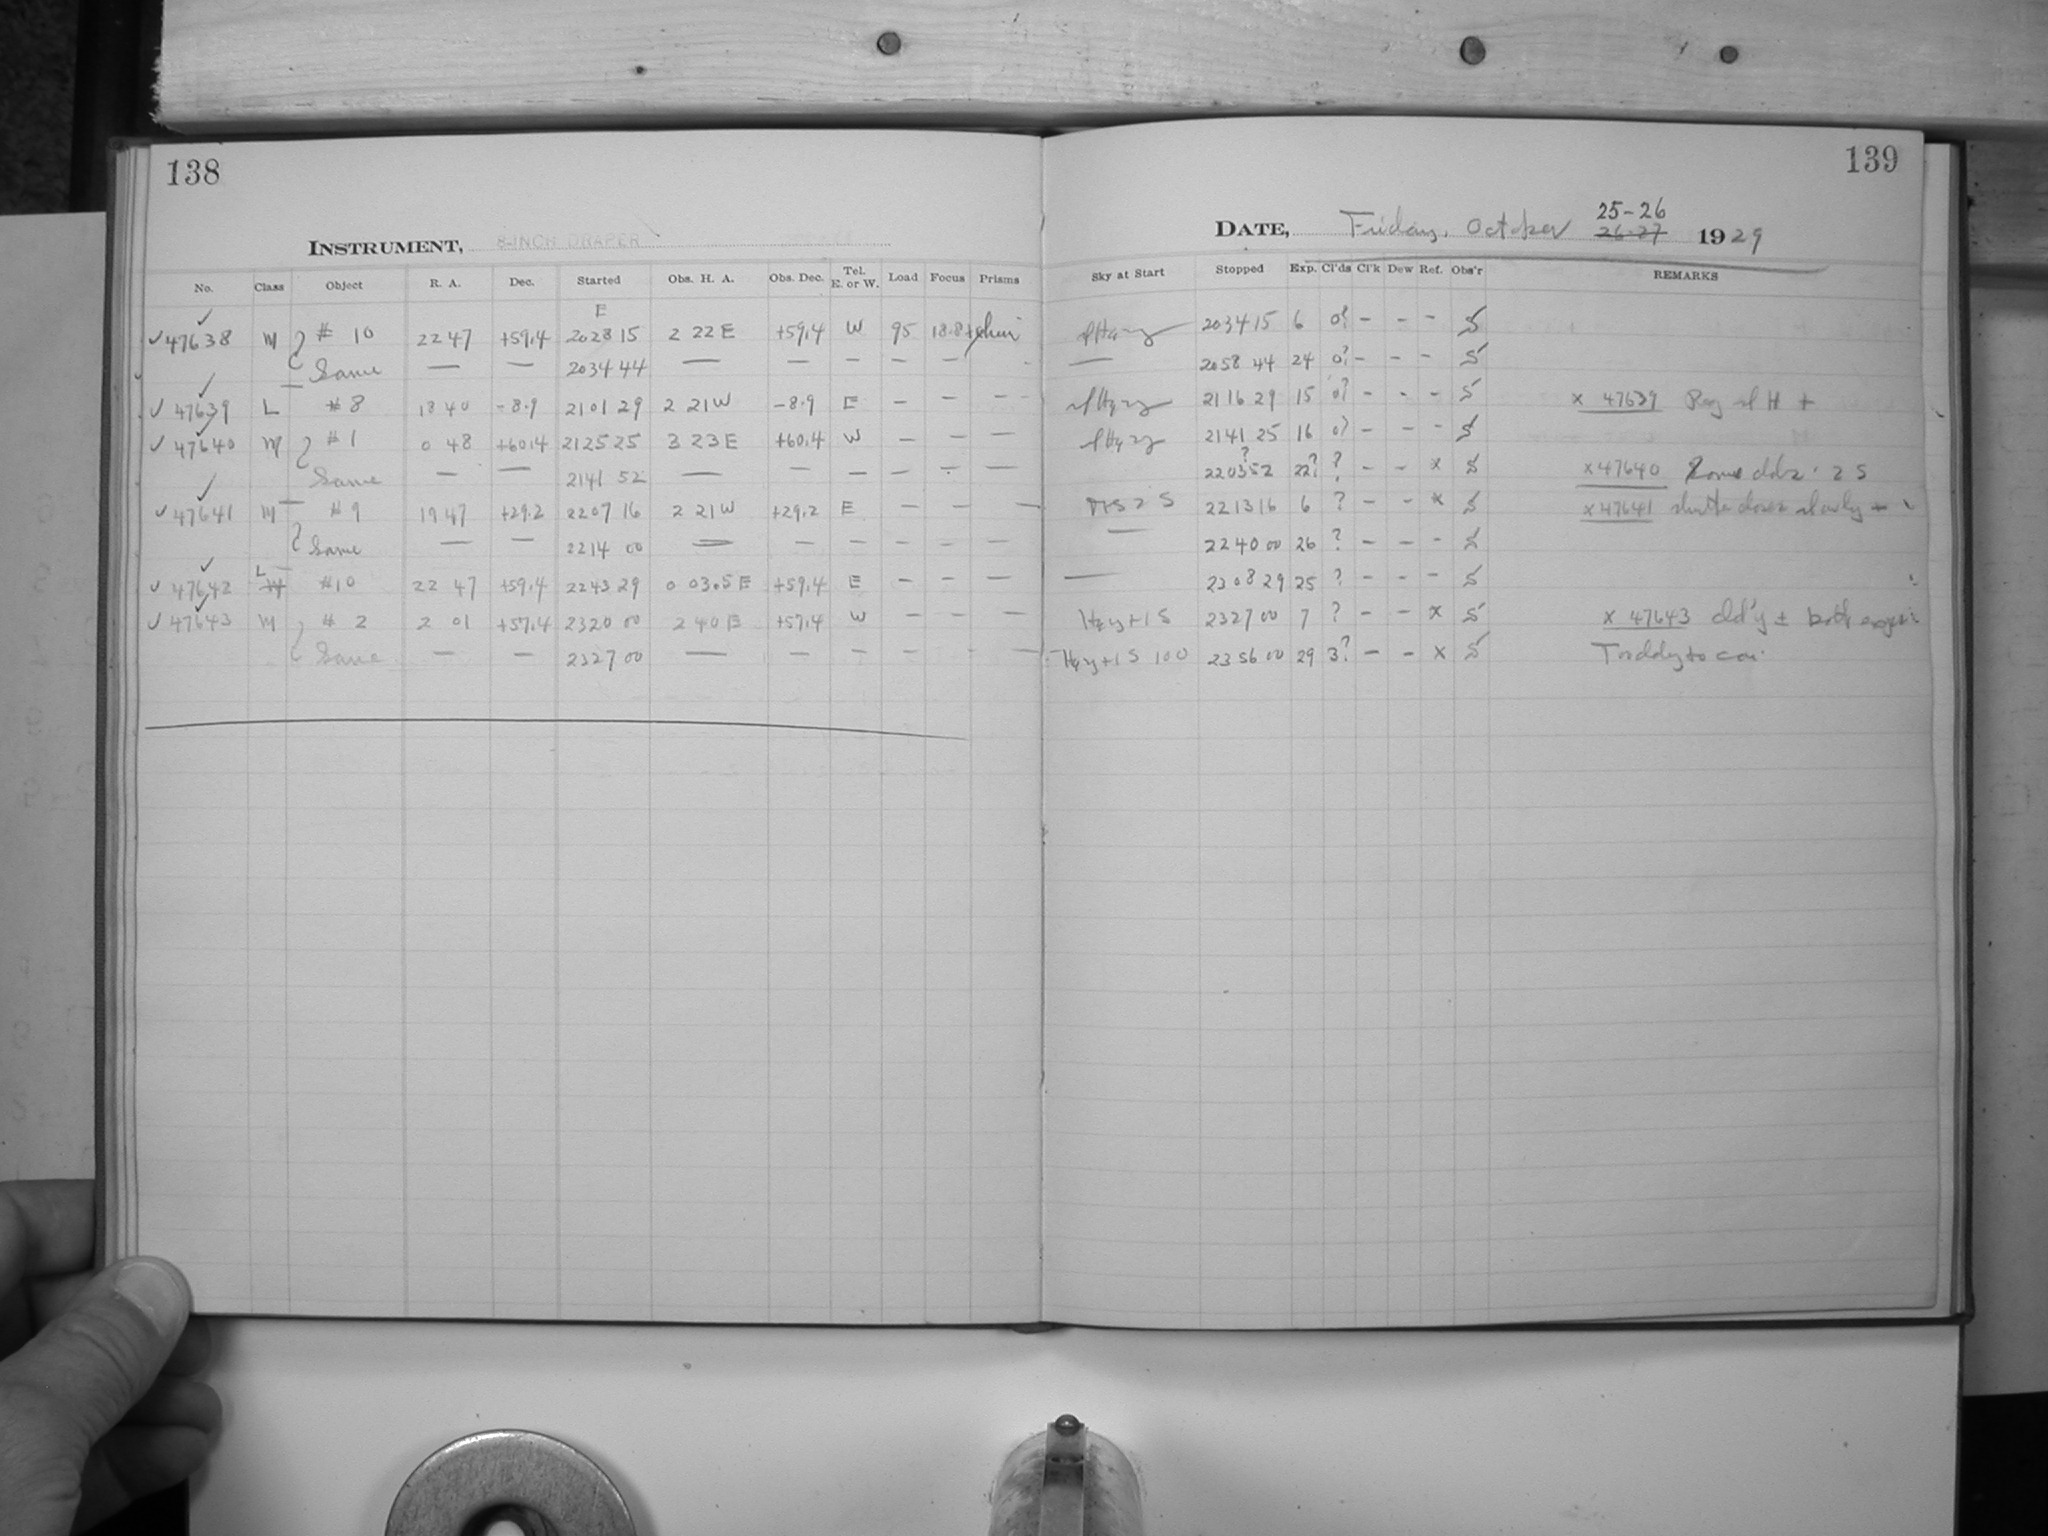 138
INSTRUMENT, 8-INCH DRAPER
No. Class Object R. A. Dec. Started Obs. H. A. Obs. Dec. Tel. E. or W. Load Focus Prisms
E
✓ 47638 M # 10 22 47 +59.4 20 28 15 2 22 E +59.4 W 95 18.8
Same — — 20 34 44 — — — — —
✓ 47639 L #8 18 40 -8.9 21 01 29 2 21 W -8.9 E — — —
✓ 47640 M #1 0 48 +60.4 21 25 25 3 23 E +60.4 W — — —
Same — — 21 41 52 — — — — — —
✓ 47641 M #9 19 47 +29.2 22 07 16 2 21 W +29.2 E — — —
Same — — 22 14 00 — — — — — —
✓ 47642 L #10 22 47 +59.4 22 43 29 0 03.5 E +59.4 E — — —
✓ 47643 M # 2 2 01 +57.4 23 20 00 2 40 E +57.4 W — — —
Same — — 23 27 00 — — — — — —
139
DATE, Friday, October 25-26 26-27 1929
Sky at Start Stopped Exp. Cl'ds Cl'k Dew Ref. Obs'r REMARKS
20 34 15 6 0? — — — S
— 20 58 44 24 0? — — — S
21 16 29 15 0? — — — S × 47639 H +
21 41 25 16 0? — — — S
22 03 52 ? 22? ? — — × S × 47640 Some 2 S
22 13 16 6 ? — — × S × 47641 shutter closes slowly
— 22 40 00 26 ? — — — S
— 23 08 29 25 ? — — — S
Hzy + 1 S 23 27 00 7 ? — — × S × 47643 cld'y ± both
Hzy + 1 S 100 23 56 00 29 3? — — × S